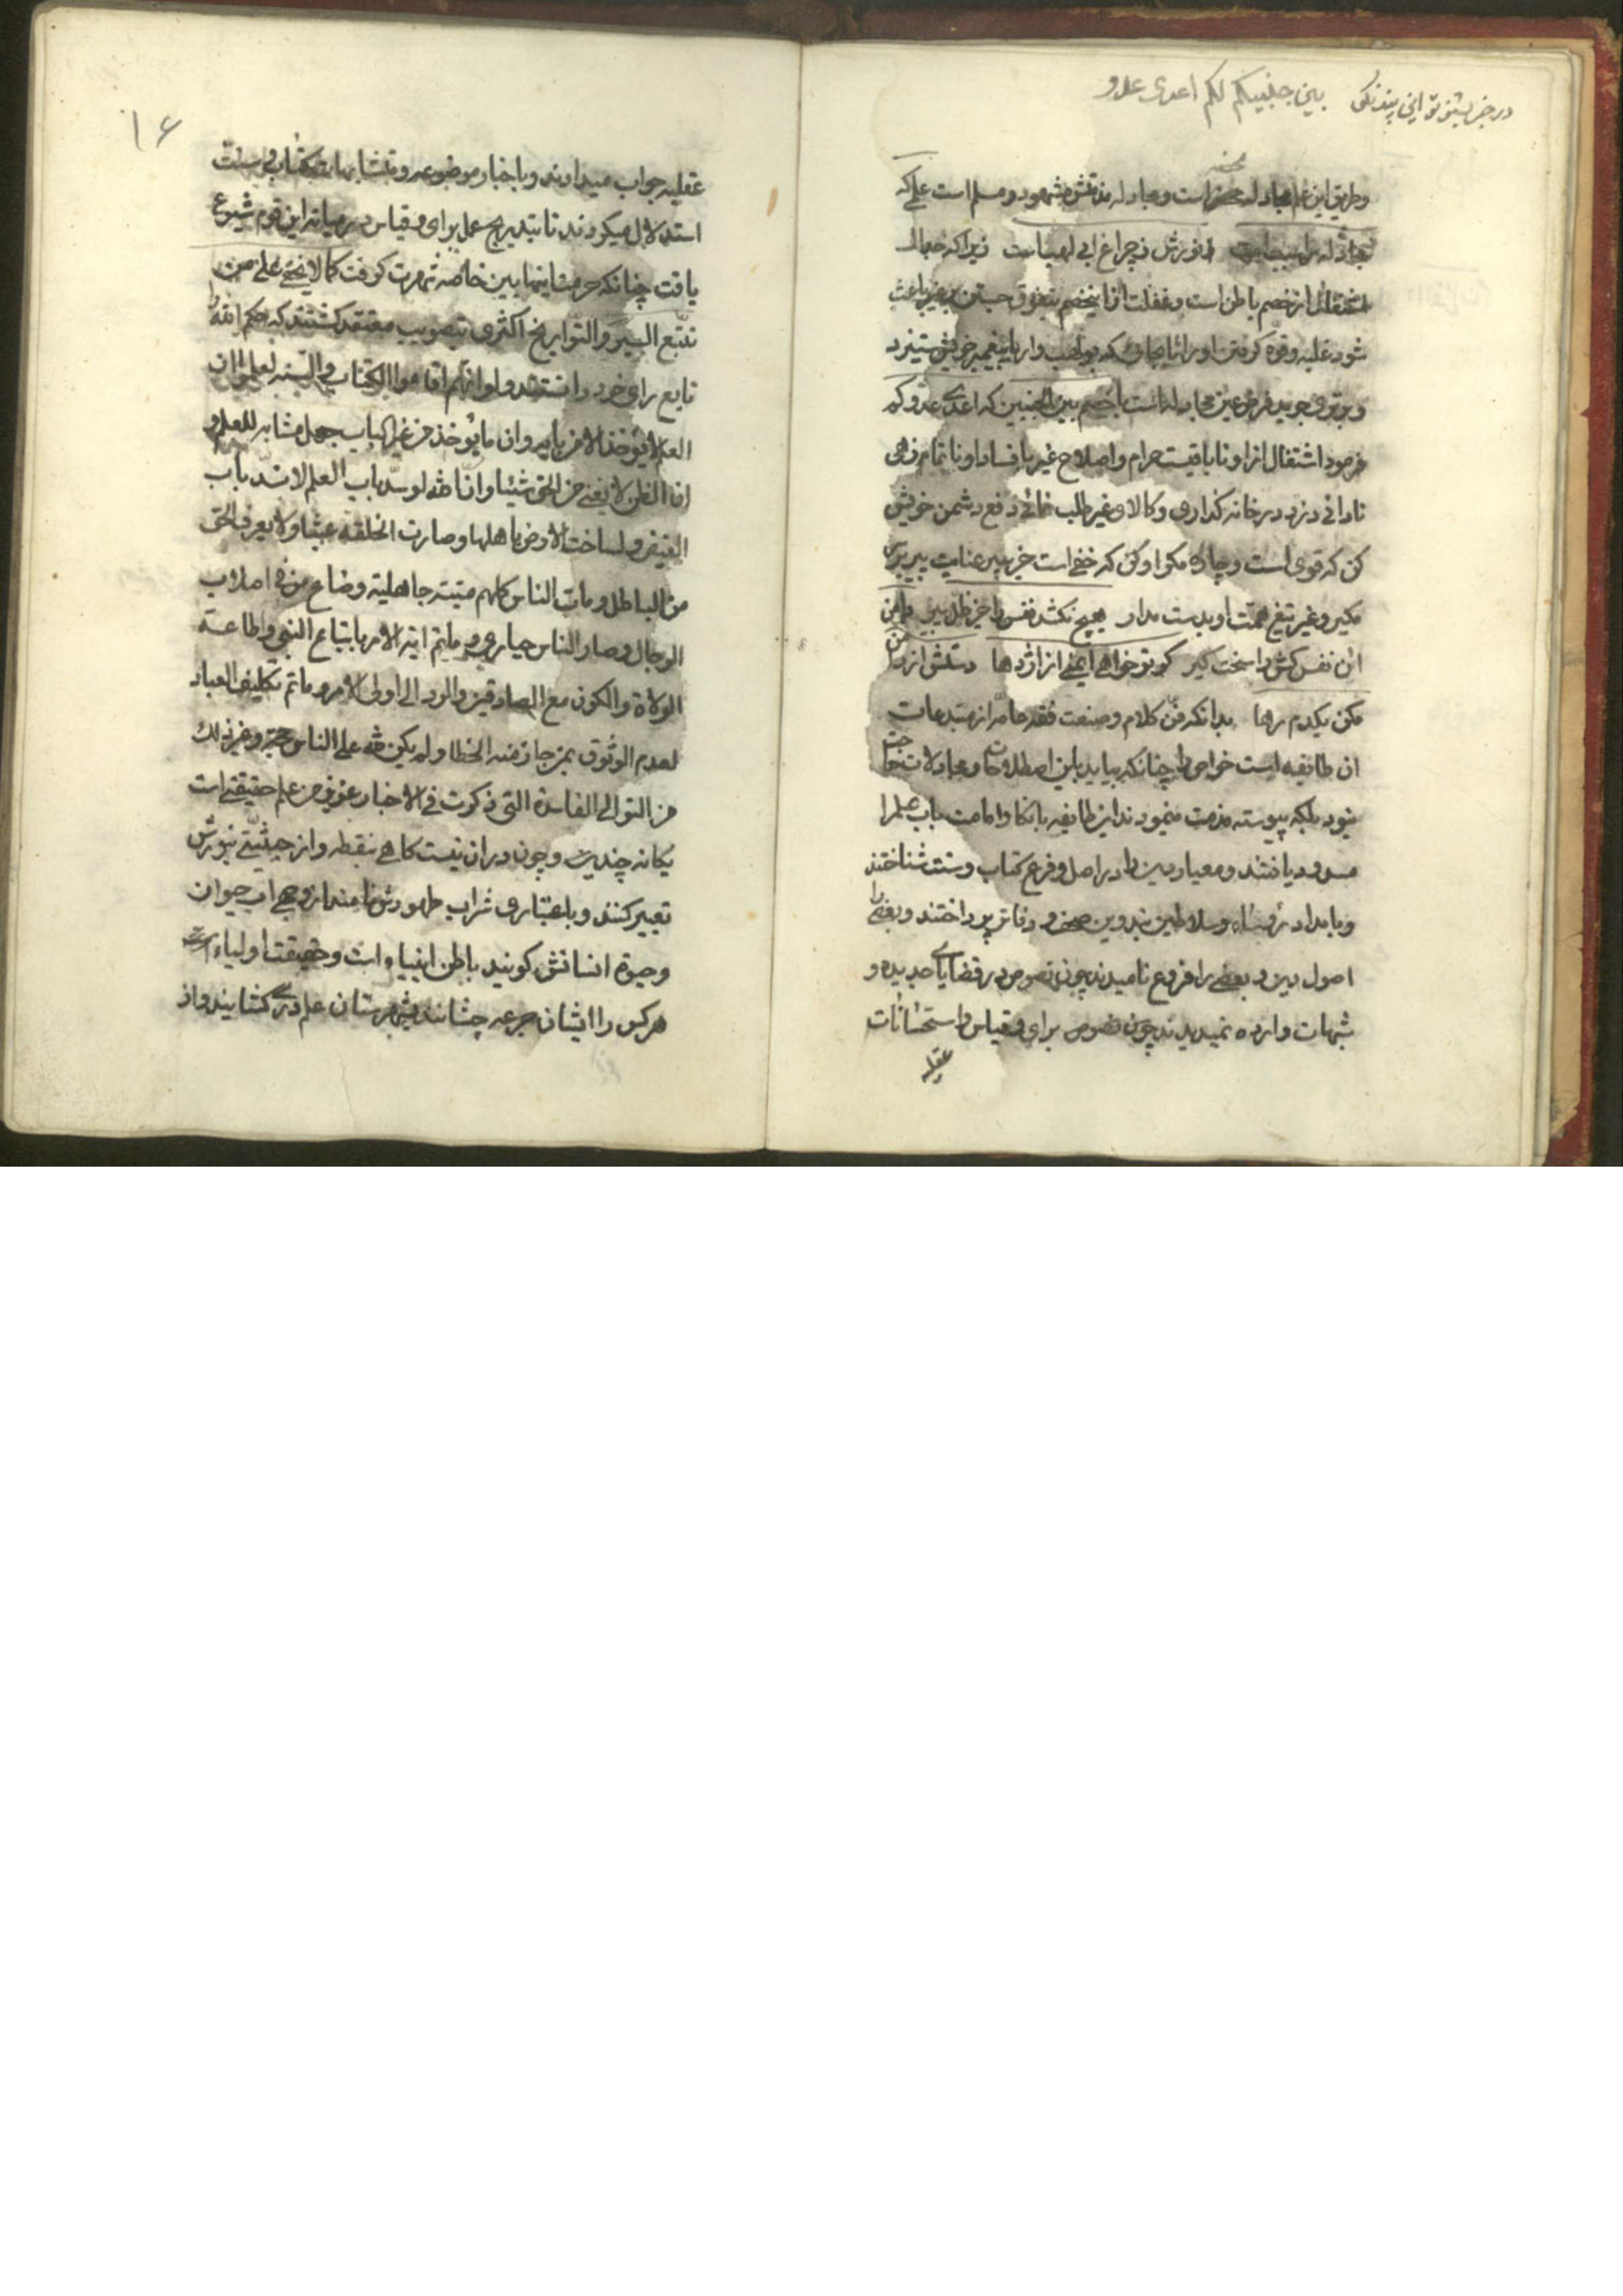 در خبر بشنو تو این پند نکو بین جنبیکم لکم اعدی عدو
وطریق این علم مجادله محض است و مجادله مذمتش مشهود و مسلم است علمی که
نورش ز چراغ ابی لهب است زیرا که جدال
اشتغال از خصم باطن است و غفلت از این خصم بتفوق جستن بر غیر باعث
شود غلبه و قوه گرفتن او را تا بجائی که بولهب وار با پیغمبر خویش ستیزد
و بر توی فرض عین مجادله است با خصم بین الجنبین که اعدی عدوک
فرمود اشتغال از او تا باقیست حرام و اصلاح غیر با فساد او ناتمام زهی
نادانی دزد در خانه گذاری و کالای غیر طلب نمائی دفع دشمن خویش
کن که قوی است و چاره مکر او کن که خفی است جز بپیر عنایت پیر
مگیر و غیر تیغ همت او بدست مدار هیچ نکشد نفس را جز ظل پیر دامن
آن نفس کش را سخت گیر گر تو خواهی ایمنی از اژدها دستش از دامن
مکن یکدم رها بدانکه فن کلام و صنعت فقه عامه از مبتدعات
ان طایفه است خواص را چنانکه بیاید باین اصطلاحات و مجادلات حاجت
نبود بلکه پیوسته مذمت مینمودند این طایفه بانکار امامت باب علم را
مسدود یافتند و معیار دین را در اصل و فرع کتاب و سنت شناختند
و بامداد رؤساء و سلاطین بتدوین صحف و دفاتر پرداختند و بعضی را
اصول دین و بعضی را فروع نامیدند چون نصوص در قضایای جدیده و
شبهات وارده نمیدیدند چون نصوص برای و قیاس و استحسانات
عقلیه
۱۶
عقلیه جواب میدادند و باخبار موضوعه و متشابهات کتاب و سنت
استدلال میکردند تا بتدریج عمل برای و قیاس در میانه این قوم شیوع
یافت چنانکه حرمت اینها بین خاصه شهرت گرفت کما لا یخفی علی من
تتبع السیر و التواریخ اکثری بتصویب معتقد گشتند که حکم الله را
تابع رای خود دانستند و لو انهم اقاموا الکتاب و السنه لعلموا ان
العلم لا یؤخذ الا من بابه و ان ما یؤخذ من غیر الباب جهل مشابه للعلم و
ان الظن لا یغنی من الحق شیئا و انه لو سد باب العلم لانسد باب
الفیض و لساخت الارض باهلها و صارت الخلقة عبثا و لا یعرف الحق
من الباطل و مات الناس کلهم میتة جاهلیة و ضاع من فی اصلاب
الرجال و صار الناس حیاری و ما تم ایة الامر باتباع النبی و اطاعة
الولاة و الکون مع الصادقین و الرد الی اولی الامر و ما تم تکلیف العباد
لعدم الوثوق بمن جاز منه الخطا و لم یکن لله علی الناس حجة و غیر ذلک
من التوالی الفاسدة التی ذکرت فی الاخبار علم حقیقتی است
یگانه چندین و چون در ان نیست گاهی بنقطه و از حیثیتی بنورش
تعبیر کنند و باعتباری شراب طهورش نامند از وجهی اب حیوان
و حیوة انسانش گویند باطن انبیاء است و حقیقت اولیاء است
هرکس را ایشان جرعه چشانند و شهرستان علم دری گشایند و از